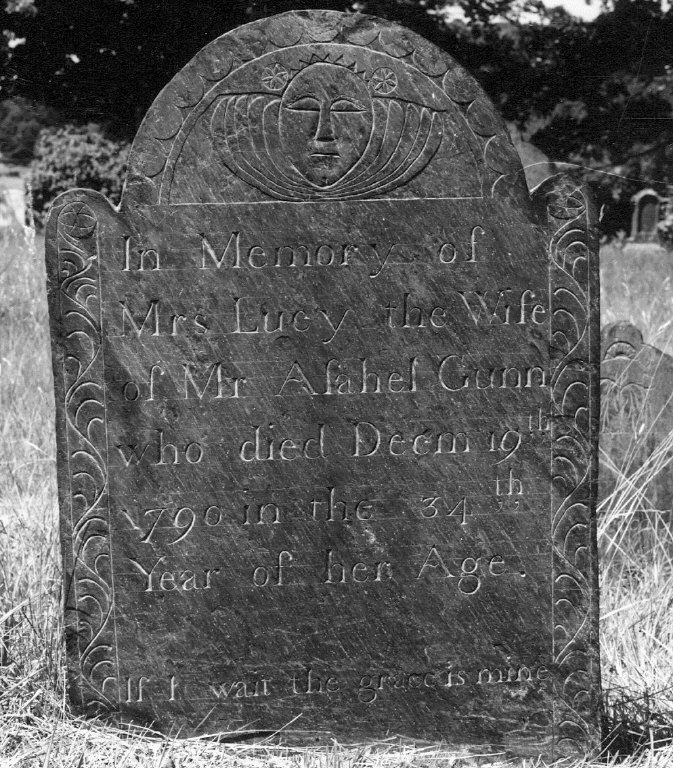 In Memory of
Mrs Lucy the Wife
of Mr Aſahel Gunn
who died Decm 19th
1790 in the 34th
Year of her Age.
If I wait the grave is mine